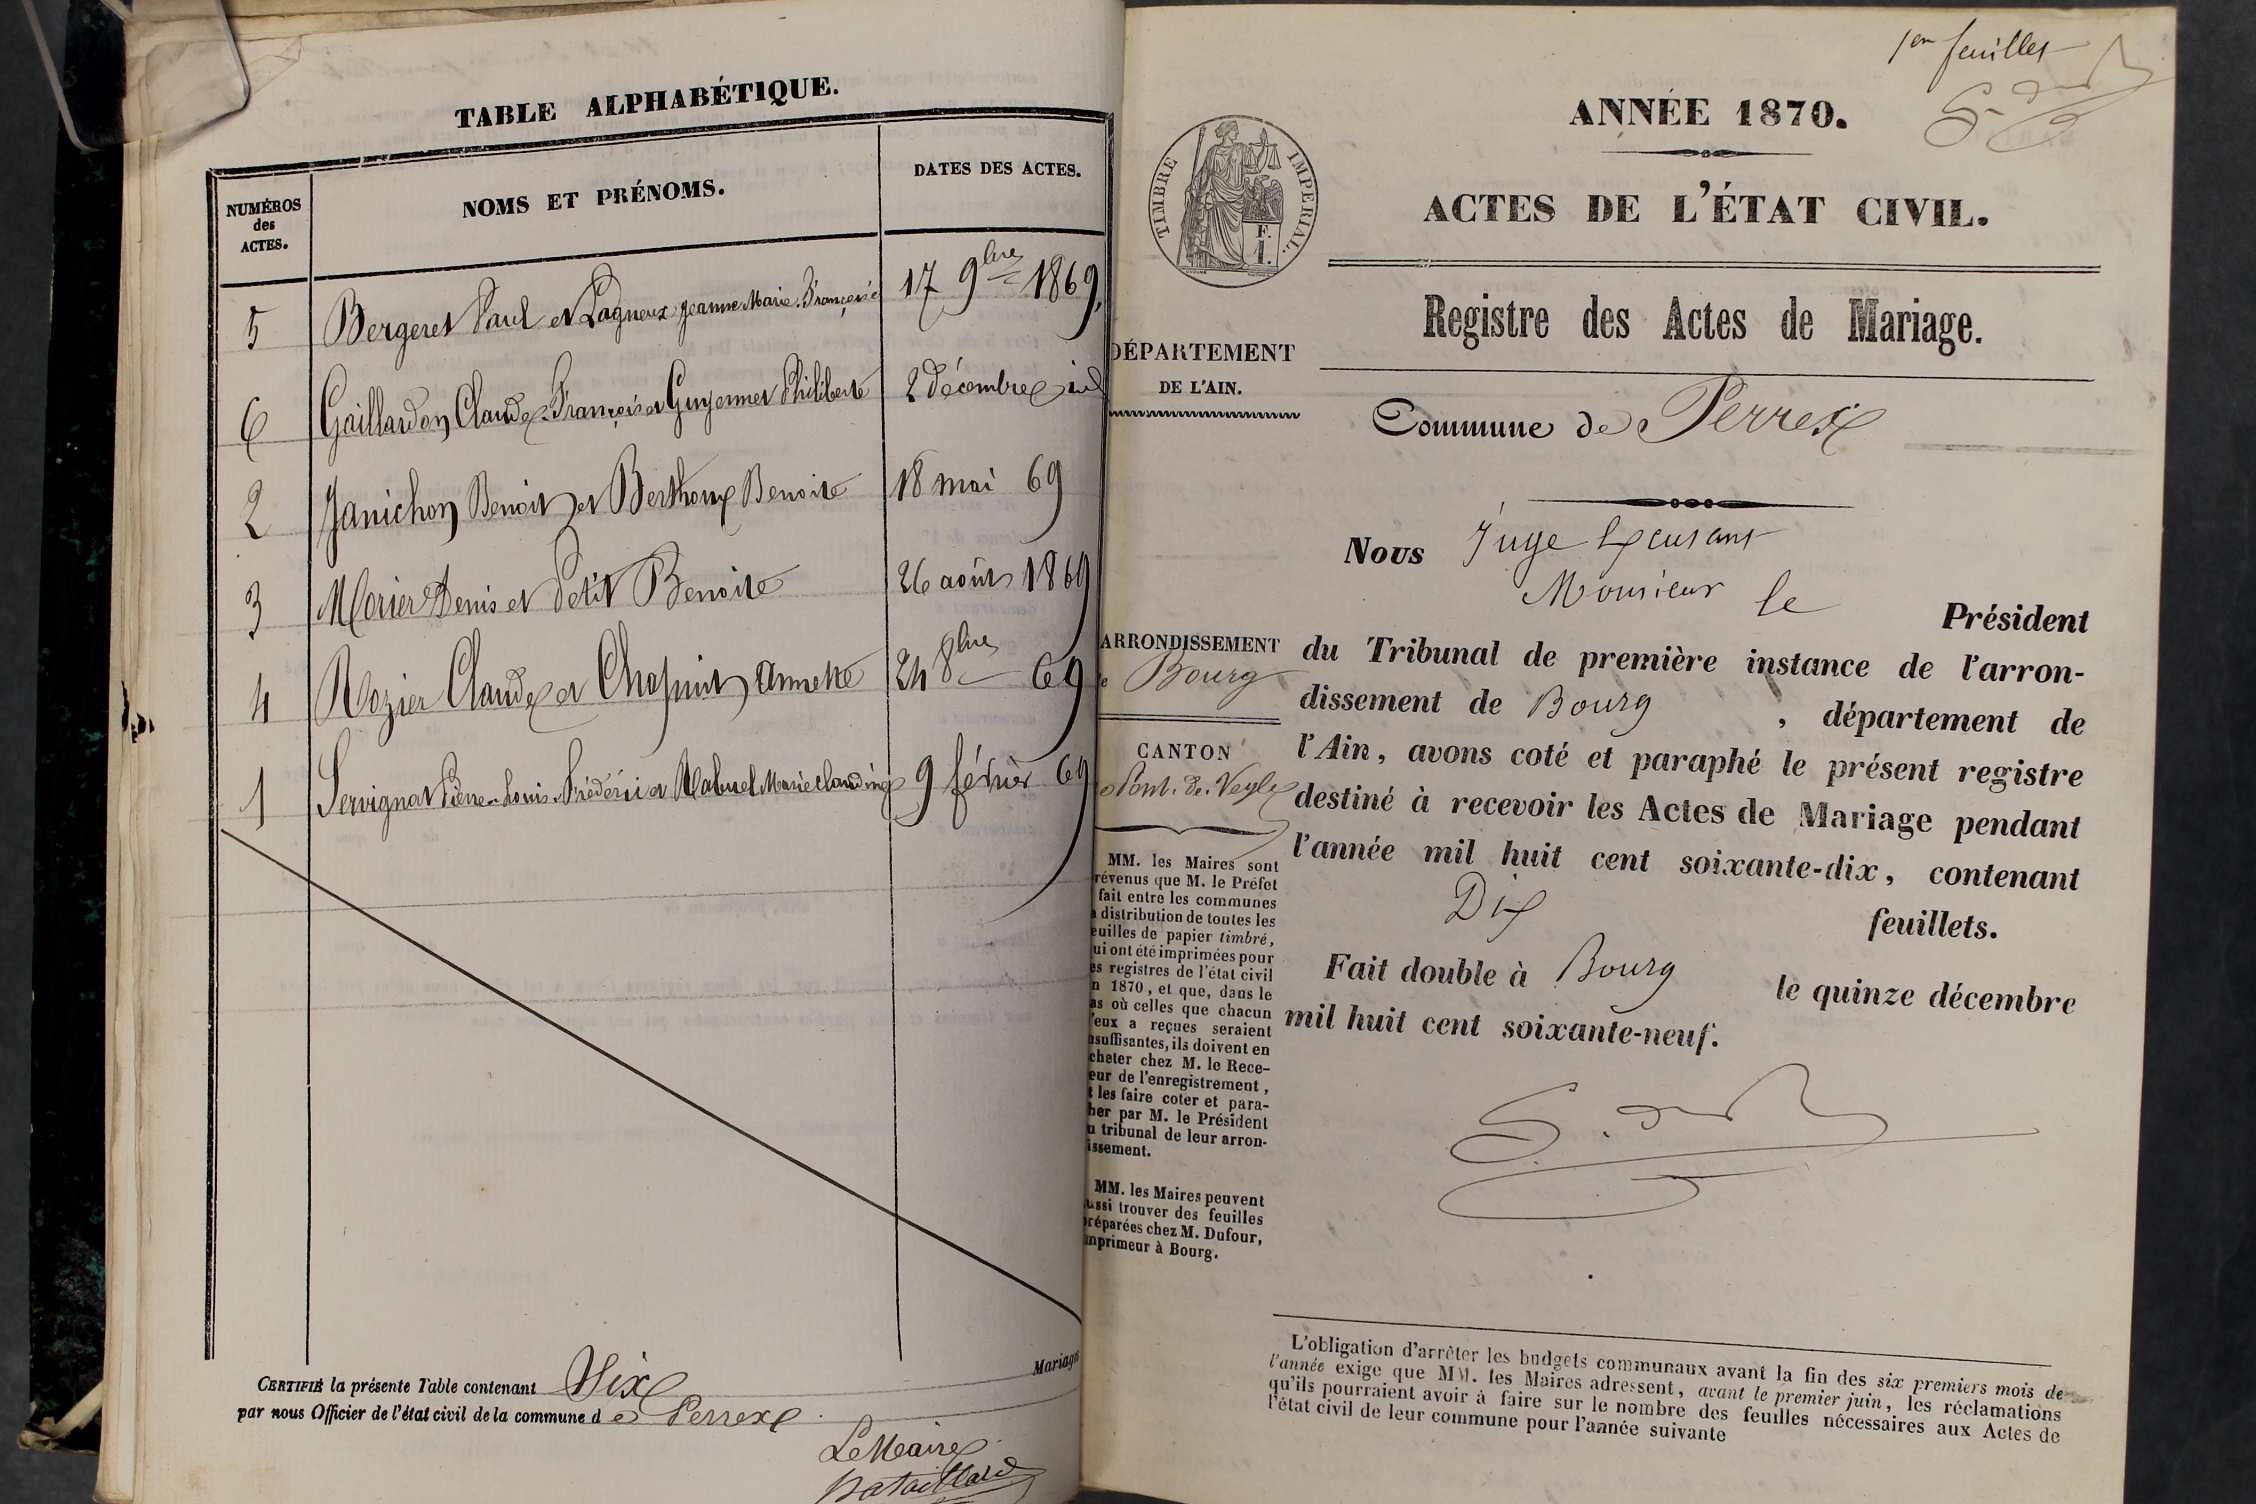 TABLE ALPHABÉTIQUE.
NUMÉROS des ACTES.
NOMS ET PRÉNOMS.
DATES DES ACTES.
5 Bergeret Paul et Lagneux Jeanne Marie Françoise 17 9bre 1869,
6 Gaillardon Claude François et Guyennet Philiberte 2 décembre id
2 Janichon Benoit et Berthoux Benoite 18 mai 69
3 Morier Denis et Petit Benoite 26 août 1869
4 Rozier Claude et Chapuit Annette 24 8bre 69
1 Servignat Pierre-Louis-Frédéric et Mabuel Marie Claudine 9 février 69
CERTIFIÉ la présente Table contenant Six Mariages
par nous Officier de l'état civil de la commune de Perrex
Le Maire
Bataillard
1er feuillet
ANNÉE 1870.
TIMBRE IMPERIAL.
F.
1.
ACTES DE L'ÉTAT CIVIL.
Registre des Actes de Mariage.
DÉPARTEMENT
DE L'AIN.
Commune de Perrex
Nous Juge
Monsieur le Président
du Tribunal de première instance de l'arron-
dissement de Bourg , département de
l'Ain, avons coté et paraphé le présent registre
destiné à recevoir les Actes de Mariage pendant
l'année mil huit cent soixante-dix, contenant
Dix feuillets.
Fait double à Bourg le quinze décembre
mil huit cent soixante-neuf.
ARRONDISSEMENT
e Bourg
CANTON
e Pont-de-Veyle
MM. les Maires sont
révenus que M. le Préfet
fait entre les communes
a distribution de toutes les
euilles de papier timbré,
ui ont été imprimées pour
es registres de l'état civil
n 1870, et que, dans le
as où celles que chacun
'eux a reçues seraient
nsuffisantes, ils doivent en
cheter chez M. le Rece-
eur de l'enregistrement,
t les faire coter et para-
her par M. le Président
u tribunal de leur arron-
issement.
MM. les Maires peuvent
ussi trouver des feuilles
réparées chez M. Dufour,
mprimeur à Bourg.
L'obligation d'arrêter les budgets communaux avant la fin des six premiers mois de
l'année exige que MM. les Maires adressent, avant le premier juin, les réclamations
qu'ils pourraient avoir à faire sur le nombre des feuilles nécessaires aux Actes de
l'état civil de leur commune pour l'année suivante